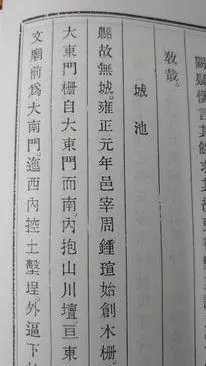 闕疑慎言其餘
敎哉。
城池
縣故無城。雍正元年邑宰周鍾瑄始創木柵。
大東門柵自大東門而南內抱山川壇亘東
文廟前爲大南門迤西內控土墼埕外逼下